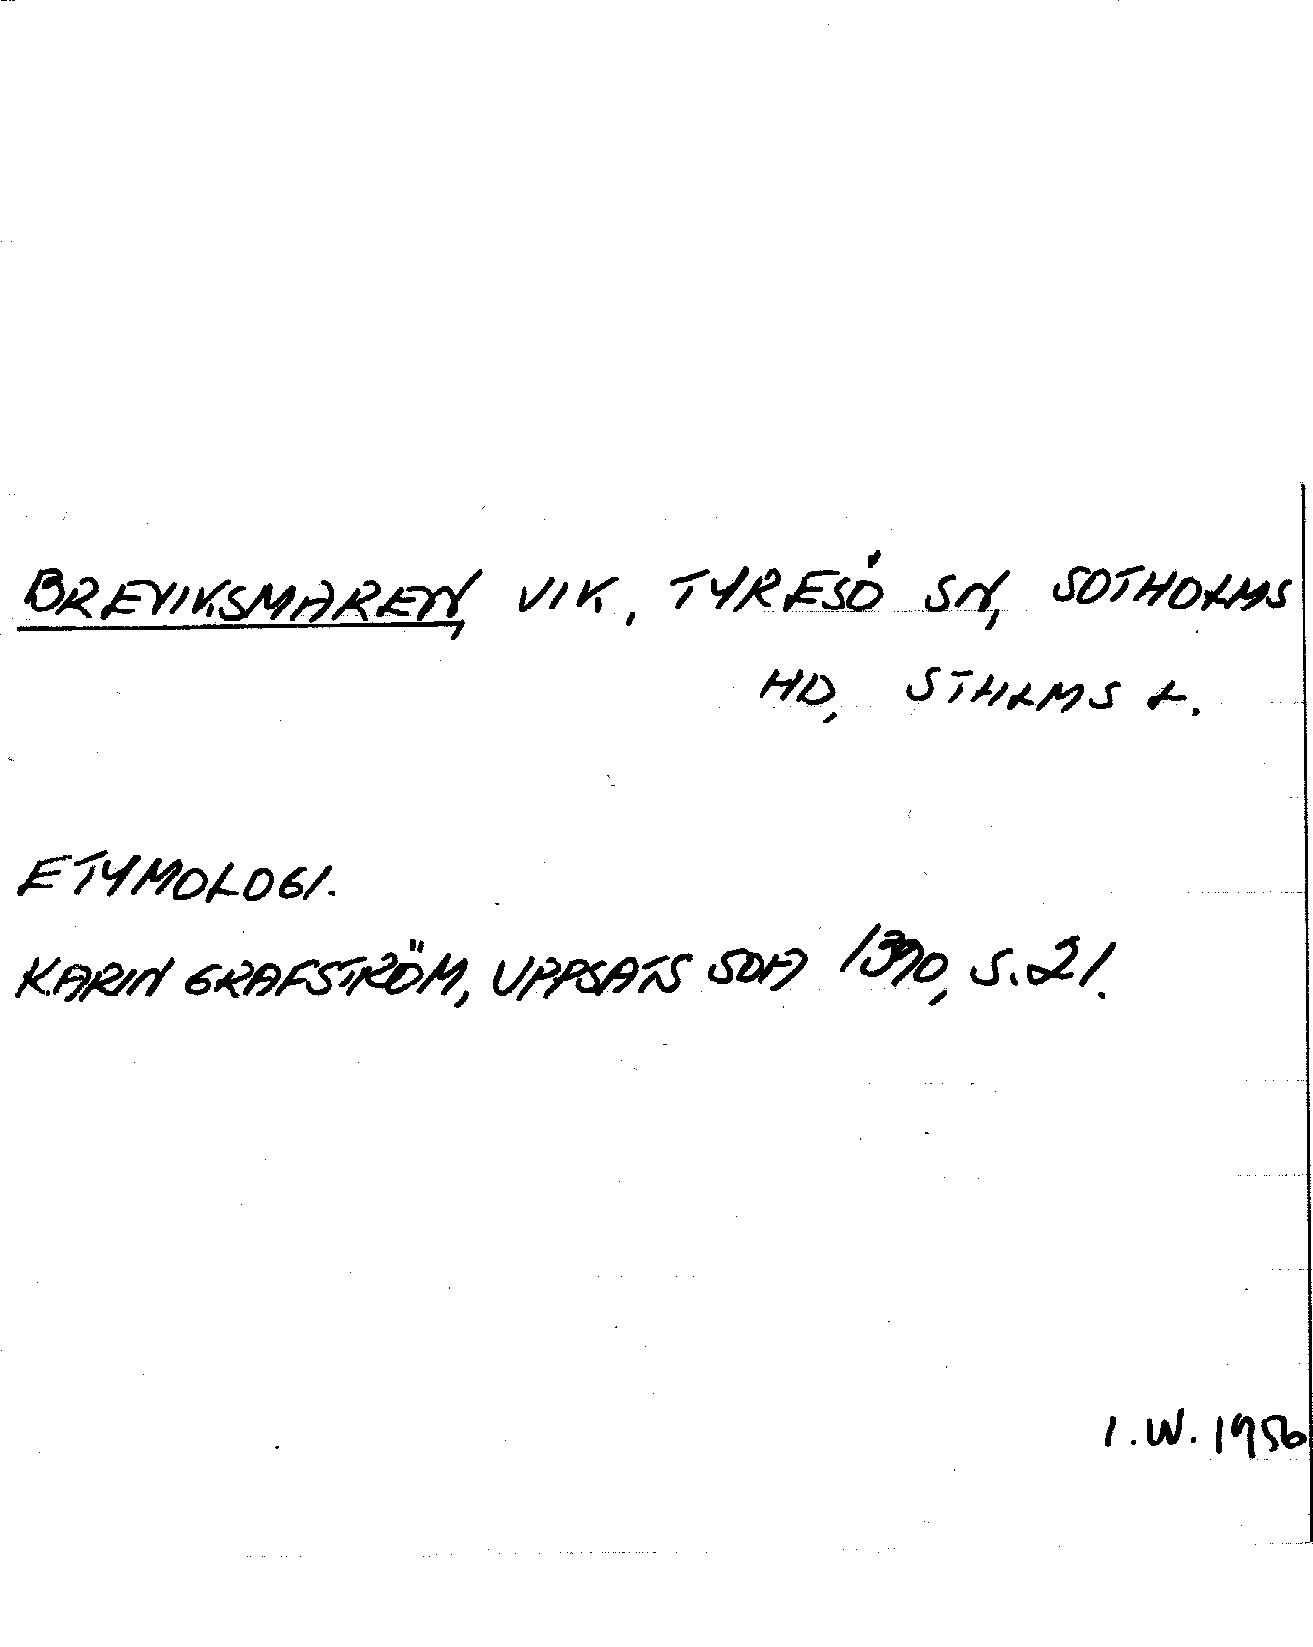 BREVIKSMAREN, VIK, TYRESÖ SN, SOTHOLMS
HD, STHLMS L.
ETYMOLOGI.
KARIN GRAFSTRÖM, UPPSATS SOFA 1390, S.21.
I.W. 1956